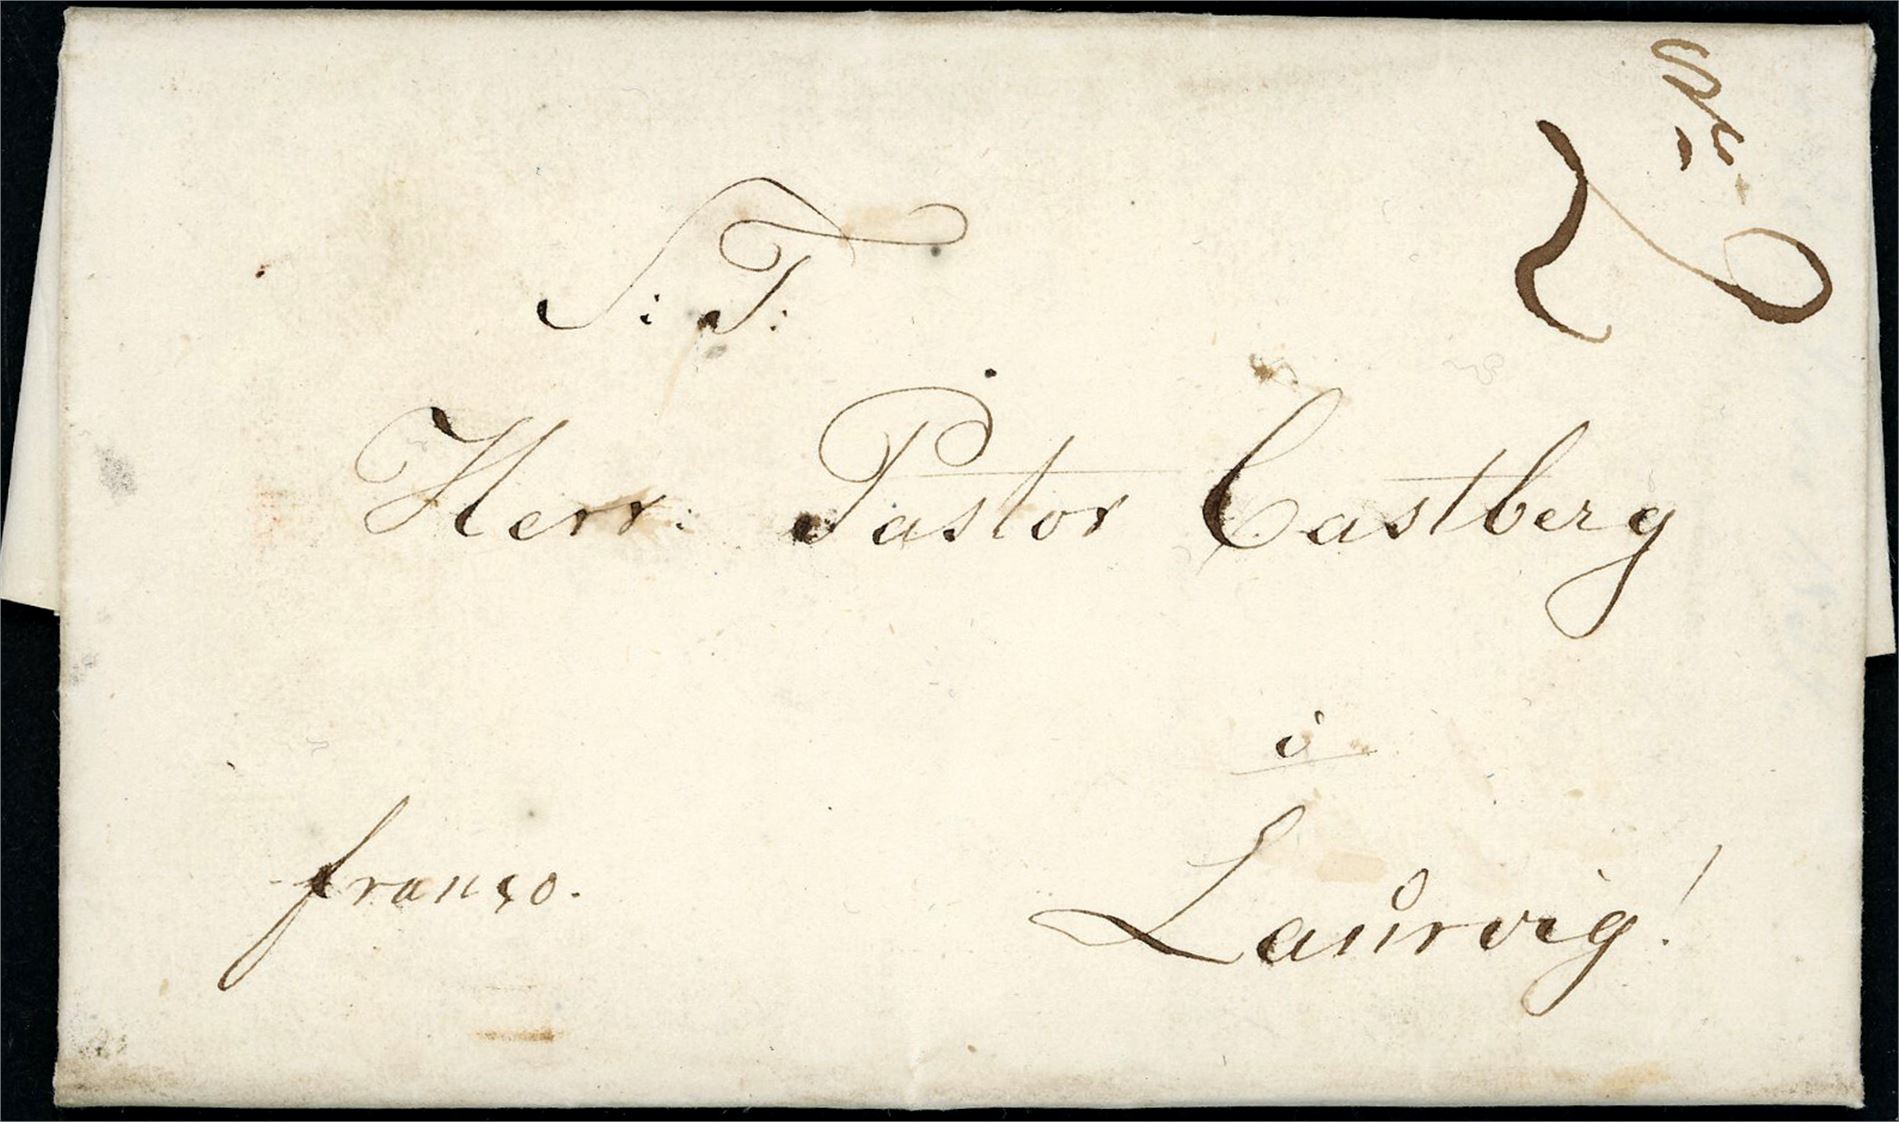 S: T:
Herr: Pastor Castberg
i
Laurvig!
franco.